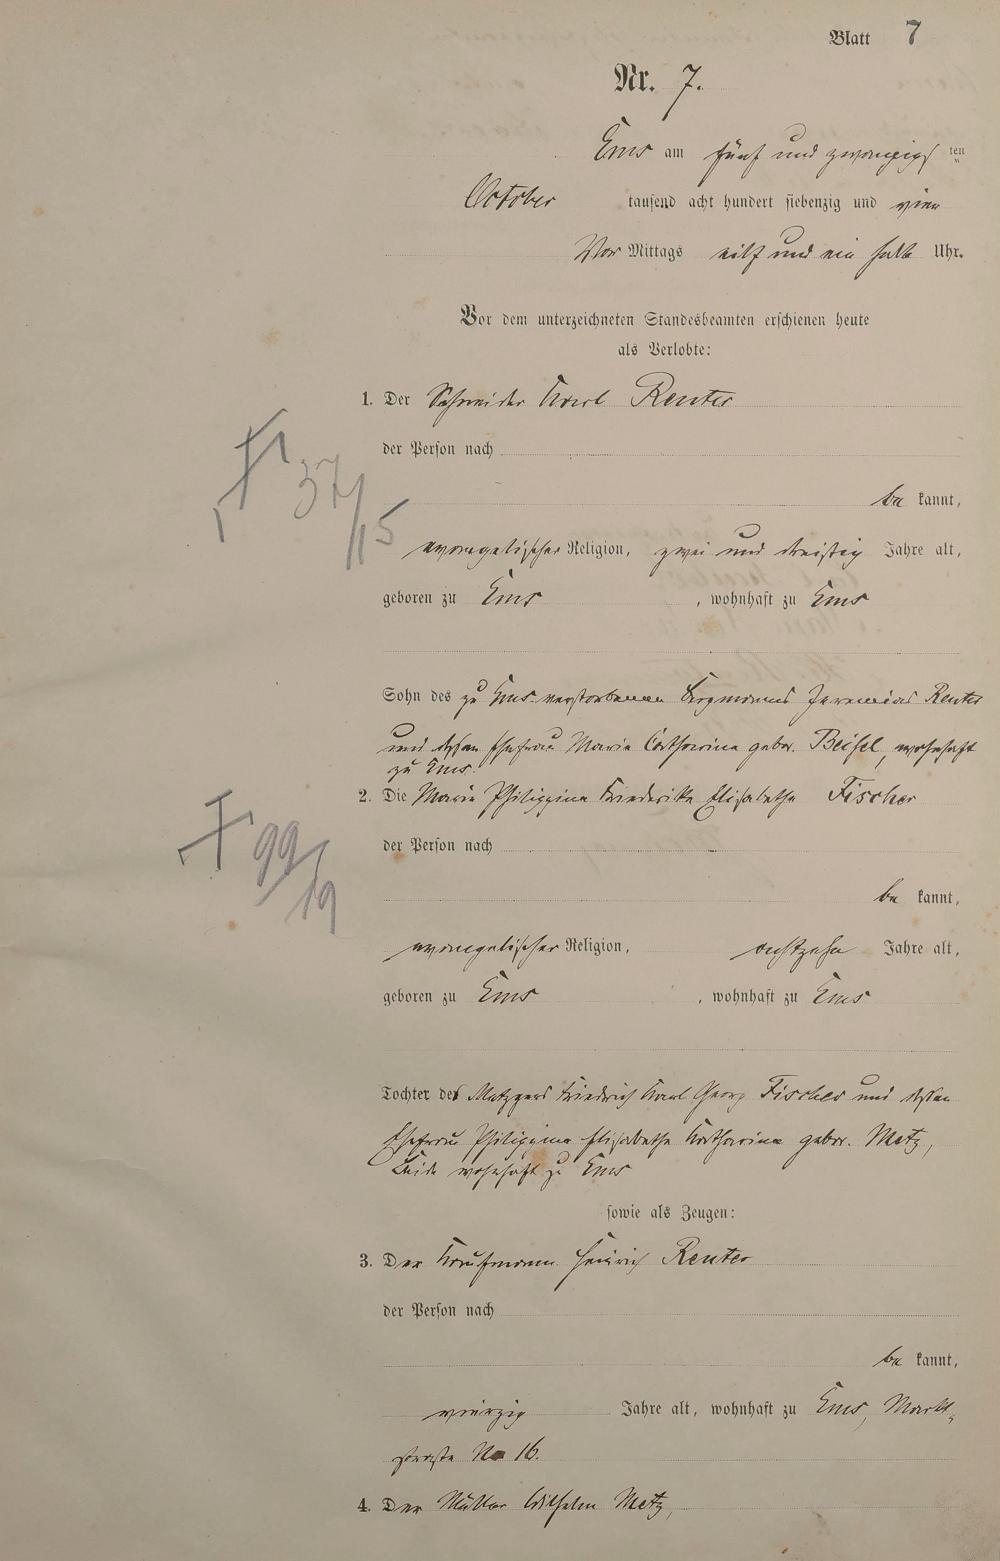 Blatt 7
Nr. 7.
Ems am fünf und zwanzigsten
October tausend acht hundert siebenzig und vier
Vor Mittags eilf und ein halb Uhr.
Vor dem unterzeichneten Standesbeamten erschienen heute
als Verlobte:
1. Der Schneider Karl Reuter
der Person nach
be kannt,
evangelischer Religion, zwei und dreißig Jahre alt,
geboren zu Ems, wohnhaft zu Ems
Sohn des zu Ems verstorbenen Bergmanns Jeremias Reuter
und dessen Ehefrau Maria Catharina gebor. Beisel, wohnhaft
zu Ems.
2. Die Maria Philippina Friederika Elisabetha Fischer
der Person nach
be kannt,
evangelischer Religion, achtzehn Jahre alt,
geboren zu Ems, wohnhaft zu Ems
Tochter des Metzgers Friedrich Karl Georg Fischer und dessen
Ehefrau Philippina Elisabetha Katharina gebor. Metz,
Beide wohnhaft zu Ems
sowie als Zeugen:
3. Der Kaufmann Heinrich Reuter
der Person nach
be kannt,
vierzig Jahre alt, wohnhaft zu Ems, Markt-
straße No 16.
4. Der Müller Wilhelm Metz,
37/15
99/19